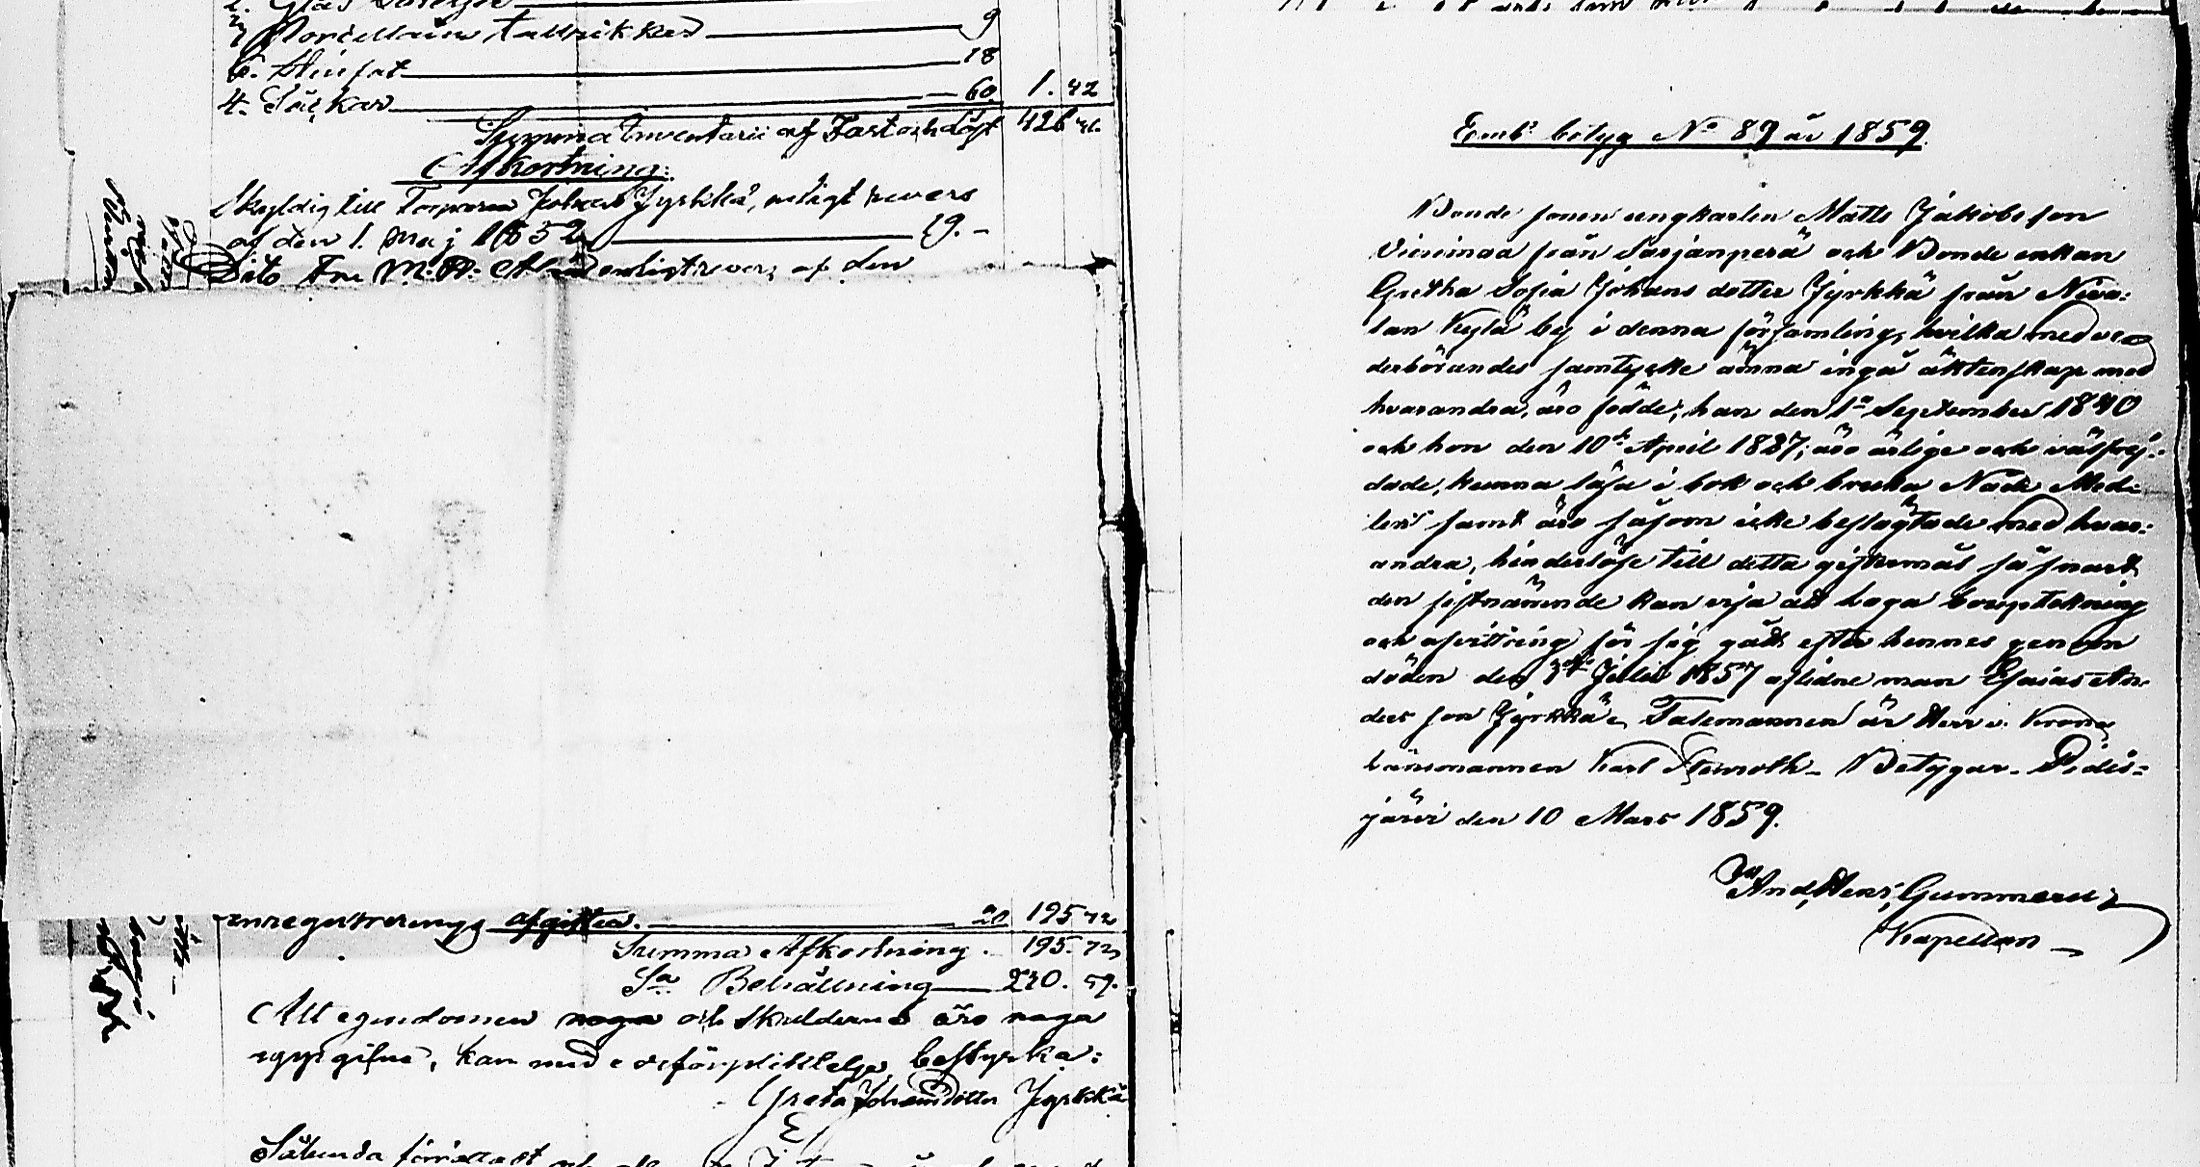 3 Porcellains tallrikkar 9
6. Stenfat 18
4. Säckar 60 1. 42
Summa Inventarii af Fast och Löst 426 41.
Afkortning:
Skyldig till Torparen Johan Jyrkkä, enligt revers
af den 1. Maj 1852 19. -
Dito Fru M: R: enligt revers af den
enregistrerings afgiften. 20 195 72
Summa Afkortning. 195. 72
Sa Behållning 230. 59.
Att egendomen noga och skulderna äro noga
uppgifne, kan med edsförpliktelse bestyrka:
Greta Johansdotter Jyrkkä
Sålunda förrättadt
Embs betyg No 89 år 1859.
Bonde sonen ungkarlen Matts Jakobsson
från Sarjanperä och Bonde enkan
Gretha Sofia Johans dotter Jyrkkä från Niva:
lan Kylä by i denna församling, hvilka med ve
derbörandes samtycke ämna ingå äktenskap med
hvarandra, äro födde; han den 1a September 1840
och hon den 10de April 1837; äro ärlige och välfrej:
dade, kunna läsa i bok och bruka Nåde Med-
len samt äro såsom icke beslägtade med hvar:
andra, hinderlöse till detta giftermål så snart
den sistnämnde kan visa att laga bouptekning
och afvittring för sig gått efter hennes genom
döden den Julii 1857 aflidne man Esaias An-
ders son Jyrkkä. Talemannen är Herr v. Krono
länsmannen Karl Forsroth - Betygar. Pidis=
järvi den 10 Mars 1859.
And. Henr. Gummerus
Kapellan